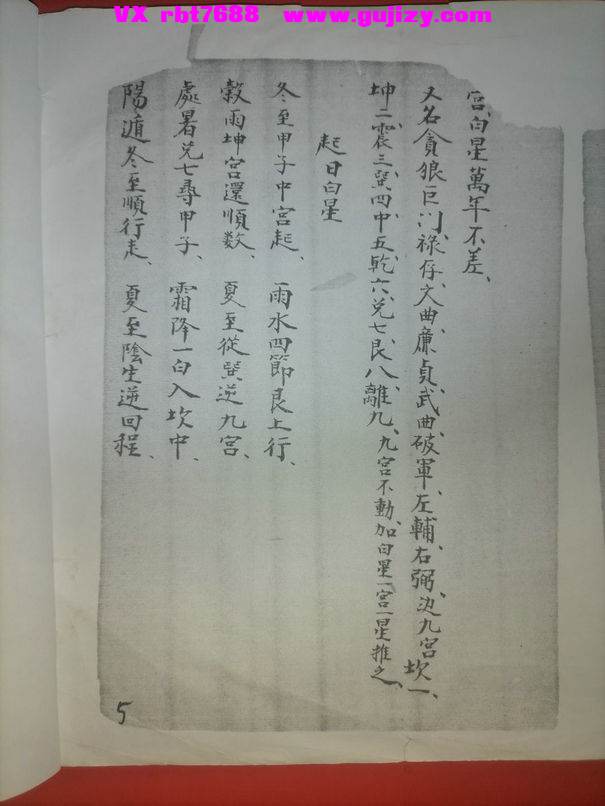 VX rbt7688 www.gujizy.com
宫、白星萬年不差、
又名貪狼、巨门、祿存、文曲、廉貞、武曲、破軍、左輔、右弼、边九宫坎一、
坤二、震三、巽四、中五、乾六、兑七、艮八、離九、九宫不動、加白星一宫一星推之、
起日白星
冬至甲子中宫起、 雨水四節艮上行、
穀雨坤宫還順数、 夏至從巽逆九宫、
處暑兑七尋甲子、 霜降一白入坎中、
陽遁冬至順行走、 夏至陰生逆回程、
5